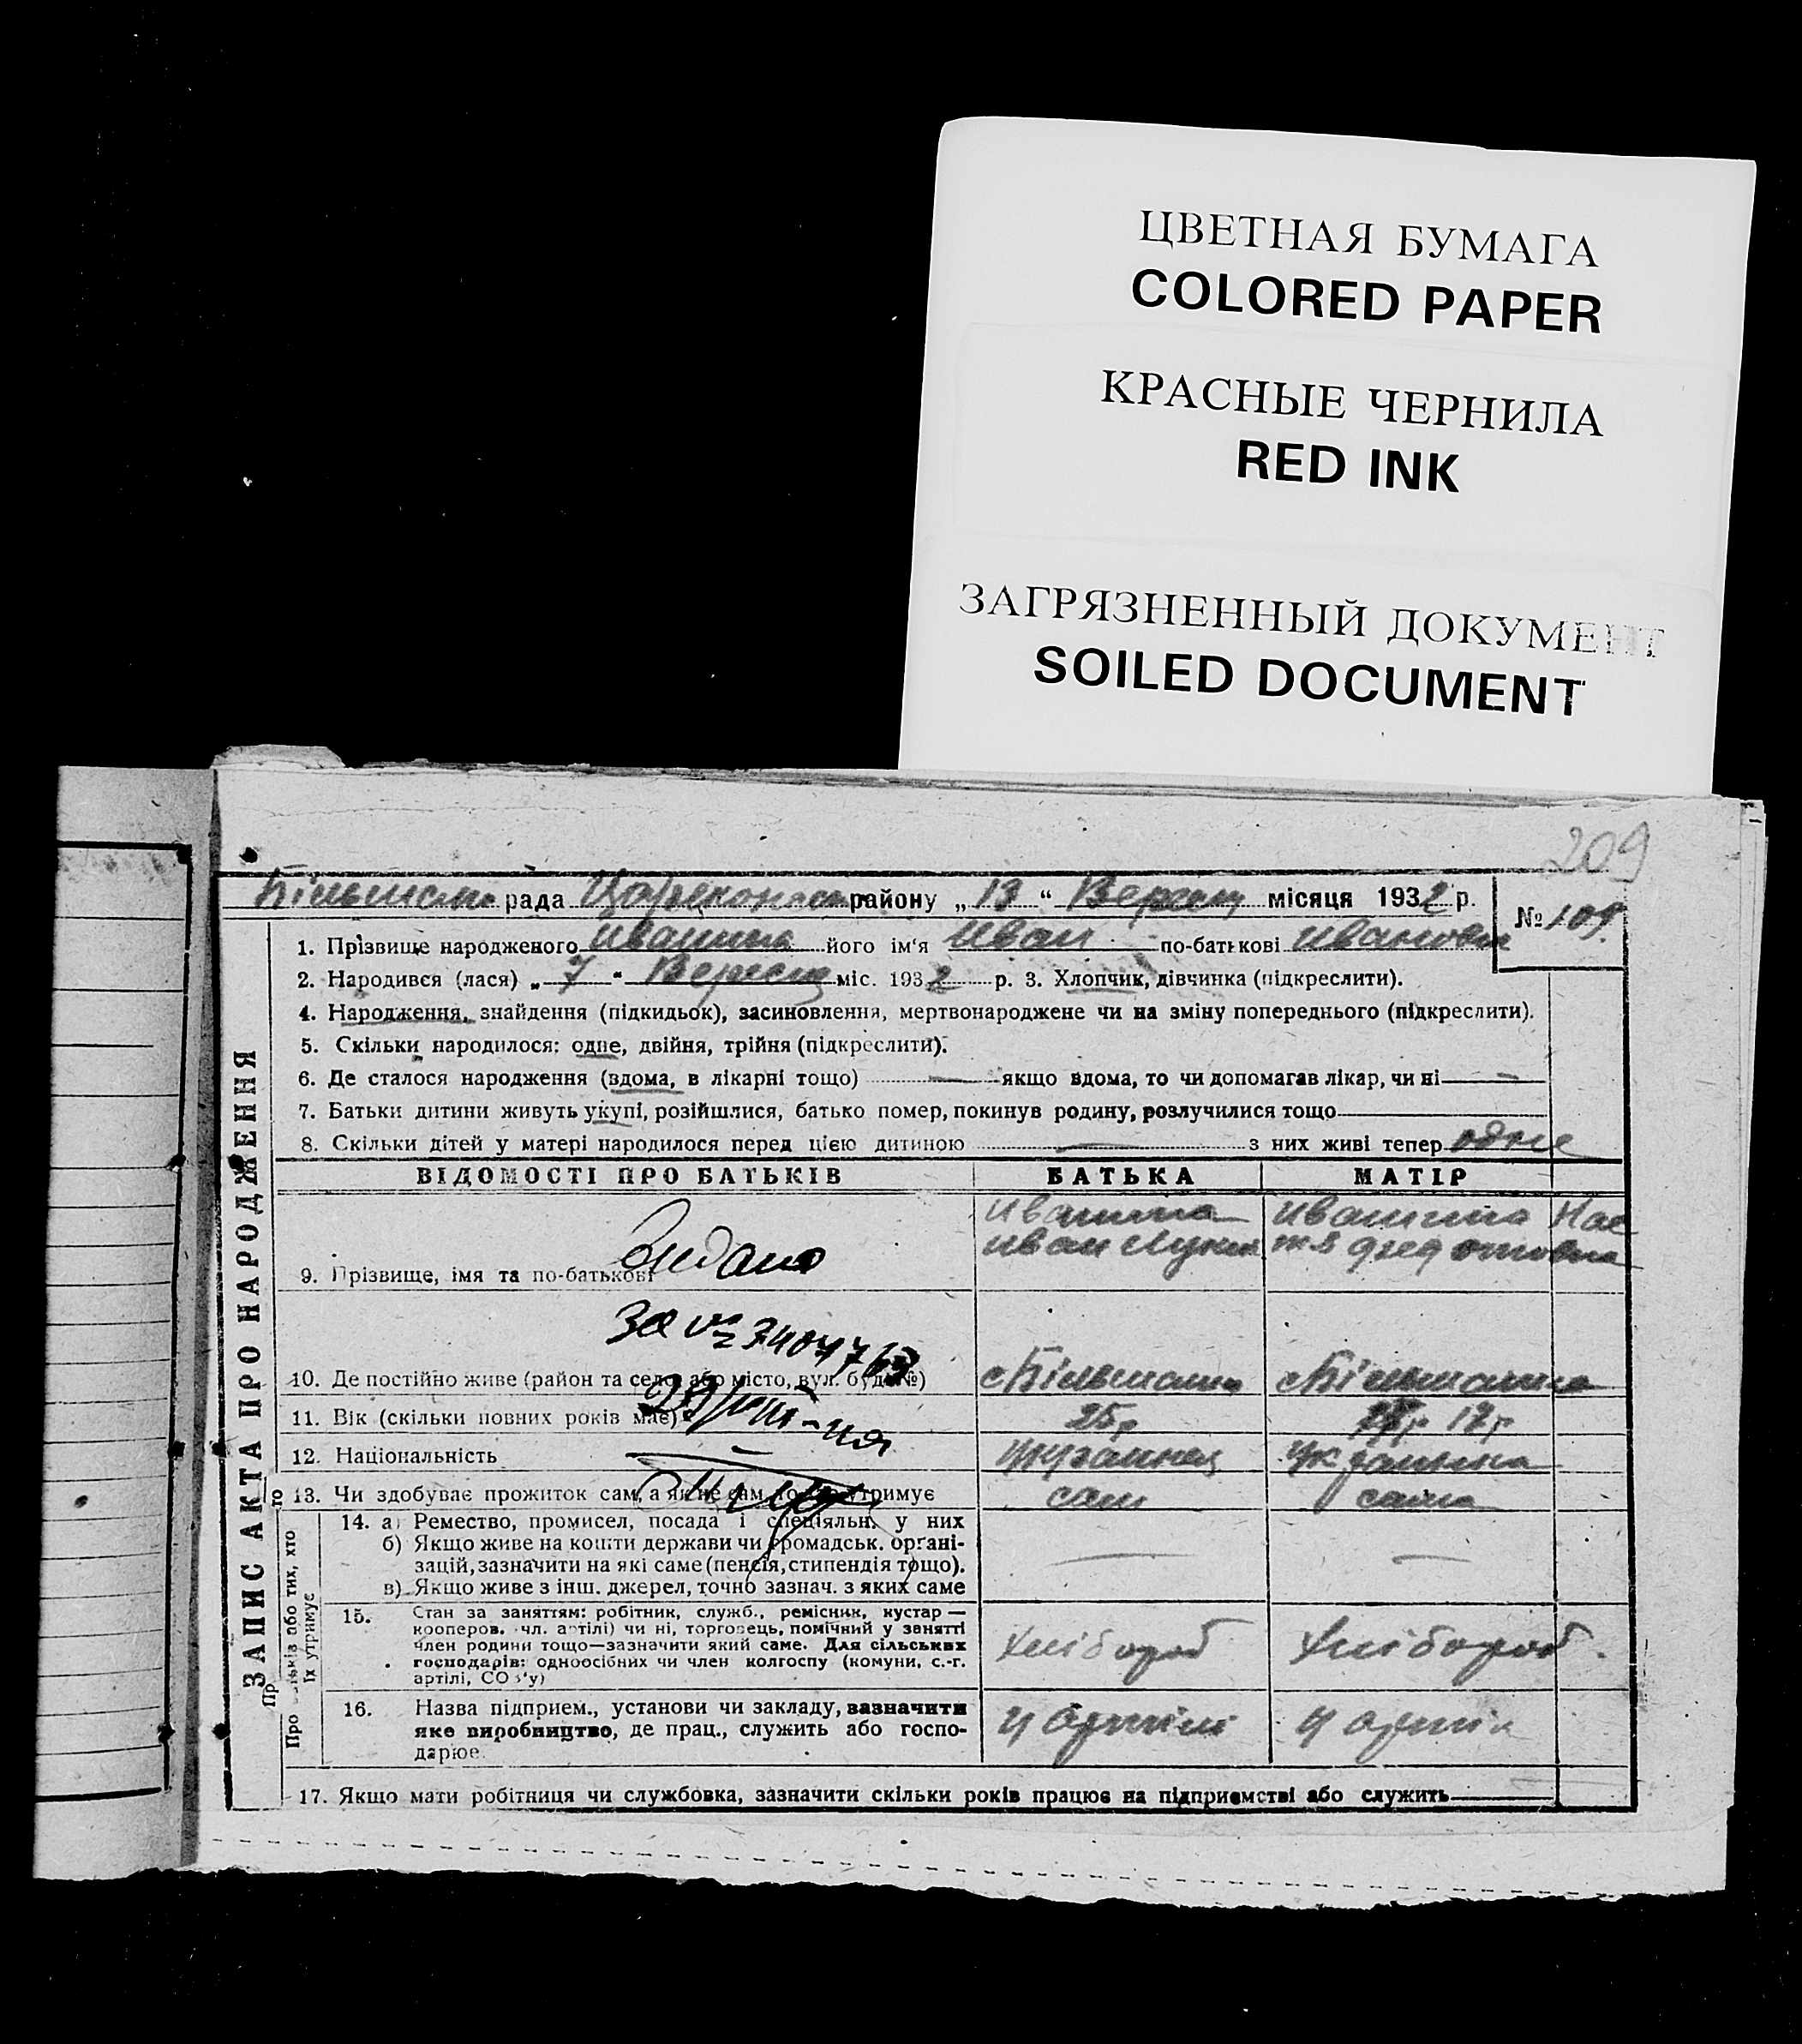 ЦВЕТНАЯ БУМАГА
COLORED PAPER
КРАСНЫЕ ЧЕРНИЛА
RED INK
ЗАГРЯЗНЕННЫЙ ДОКУМЕНТ
SOILED DOCUMENT
209
рада району „13“ місяця 1932 р.
№ 109.
ЗАПИС АКТА ПРО НАРОДЖЕННЯ
1. Прізвище народженого Ивашина його ім‘я Иван по-батькові Иванович
2. Народився (лася) „7“ міс. 1932 р. 3. Хлопчик, дівчинка (підкреслити).
4. Народження, знайдення (підкидьок), засиновлення, мертвонароджене чи на зміну попереднього (підкреслити).
5. Скільки народилося: одне, двійня, трійня (підкреслити).
6. Де сталося народження (вдома, в лікарні тощо) — якщо вдома, то чи допомагав лікар, чи ні —
7. Батьки дитини живуть укупі, розійшлися, батько помер, покинув родину, розлучилися тощо
8. Скільки дітей у матері народилося перед цією дитиною — з них живі тепер одне
ВІДОМОСТІ ПРО БАТЬКІВ БАТЬКА МАТІР
Ивашина Ивашина Нас
Иван
9. Прізвище, імя та по-батькові
Видано
за №
10. Де постійно живе (район та село, або місто, вул. буд. №) с Більшанка с Більшанка
11. Вік (скільки повних років має) 25р 17р
12. Національність Українец Українка
13. Чи здобуває прожиток сам, а як не сам, то хто утримує сам сама
Про батьків або тих, хто їх утримує
14. а) Ремество, промисел, посада і спеціяльн. у них
б) Якщо живе на кошти держави чи громадськ. органі-
зацій, зазначити на які саме (пенсія, стипендія тощо).
в) Якщо живе з інш. джерел, точно зазнач. з яких саме
15. Стан за заняттям: робітник, служб., ремісник, кустар —
кооперов. чл. артілі) чи ні, торговець, помічний у занятті
член родини тощо—зазначити який саме. Для сільських
господарів: одноосібних чи член колгоспу (комуни, с.-г.
артілі, СОЗ'у)
Хлібороб Хлібороб.
16. Назва підприєм., установи чи закладу, зазначити
яке виробництво, де прац., служить або госпо-
дарює.
у артілі у артілі
17. Якщо мати робітниця чи службовка, зазначити скільки років працює на підприємстві або служить